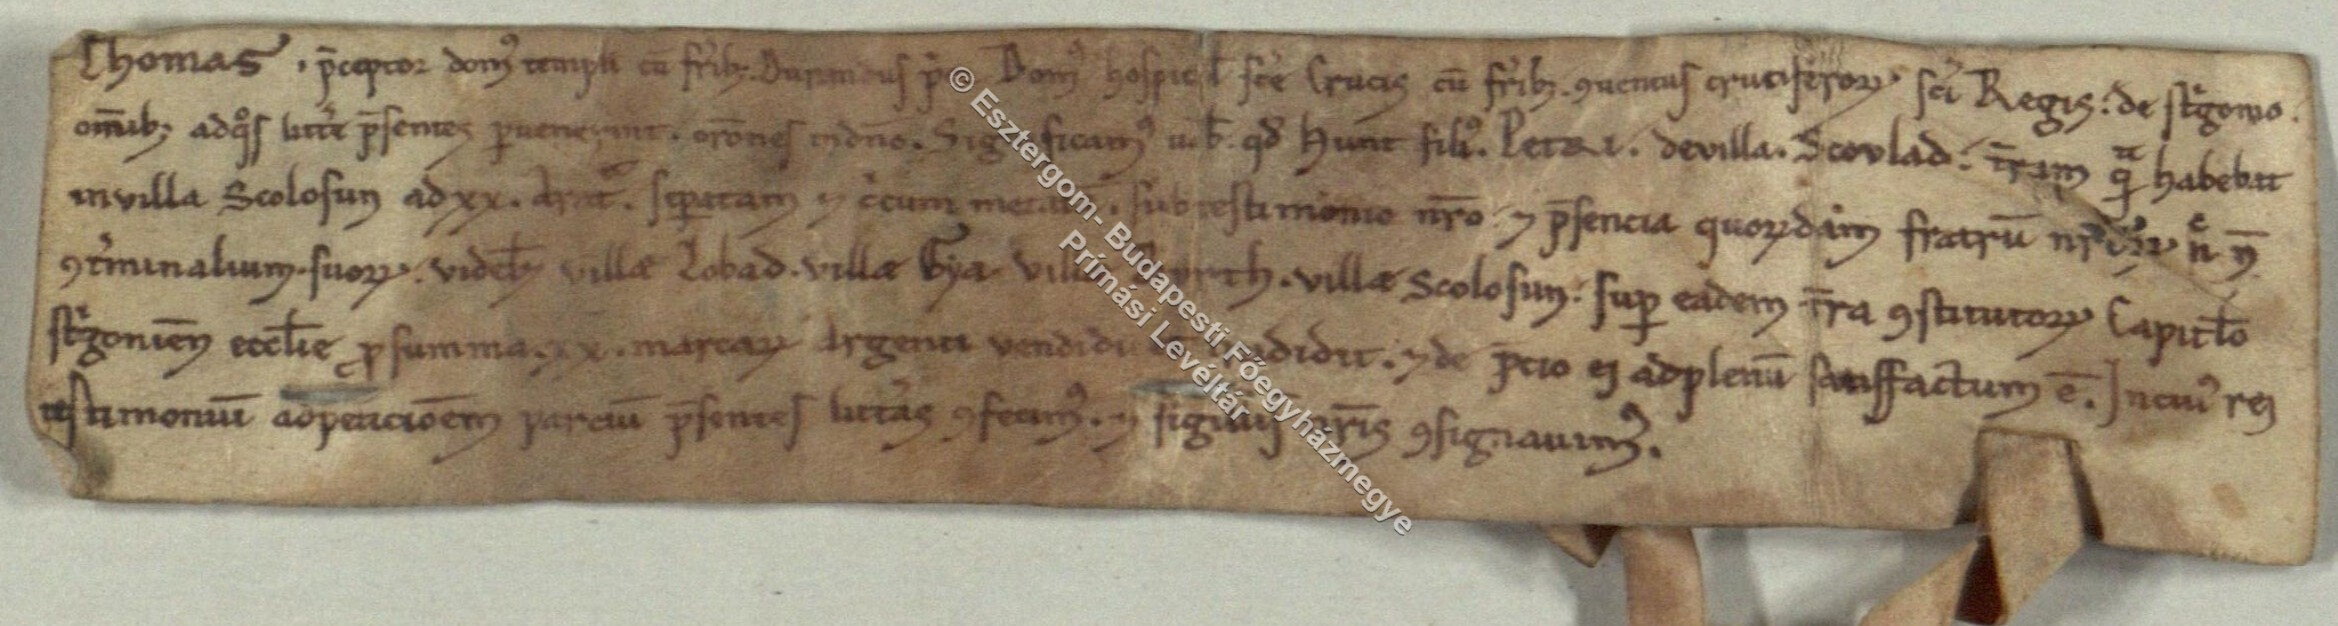 Thomas . p̄ceptor domꝰ templi cū fr̄ibꝫ. Durandus pͥor Domꝰ hospital̄ sc̄e Crucis cū fr̄ibꝫ. ꝯuentus cruciferoꝝ sc̄i Regis: de st̾gonio.
om̄ibꝫ ad qͦs litt̾e p̄sentes ꝑuenerint. or̄ones in dn̄o. Significamꝰ u. b̄. qd̄ Hunt filiꝰ. Petri. de villa. Scoulad. t̄ram qᵃ habebat
in villa Scolosun ad xx. arat̾. seꝑatam ⁊ c̾cum metatā. sub testimonio nr̄o. ⁊ p̄sencia quorūdam fratrū nr̄oꝝ n̄ n̄
ꝯt̾minalium. suoꝝ. videlꝫ villæ Lobad. villæ Gya villæ scolosun. suꝑ eadem t̄ra ꝯstitutoꝝ Capitl̄o
st̾gonien̄ eccl̄ie ꝓ summa. xx. marcaꝝ Argenti vendidit ⁊ de p̄cio ei ad plenū satisfactum ē. In cuiꝰ rei
testimoniū ad peticiōem parciū p̄sentes litt̾as ꝯfecimꝰ. ⁊ sigillis nr̄is ꝯsignauimꝰ.
© Esztergom- Budapesti Főegyházmegye
Prímási Levéltár